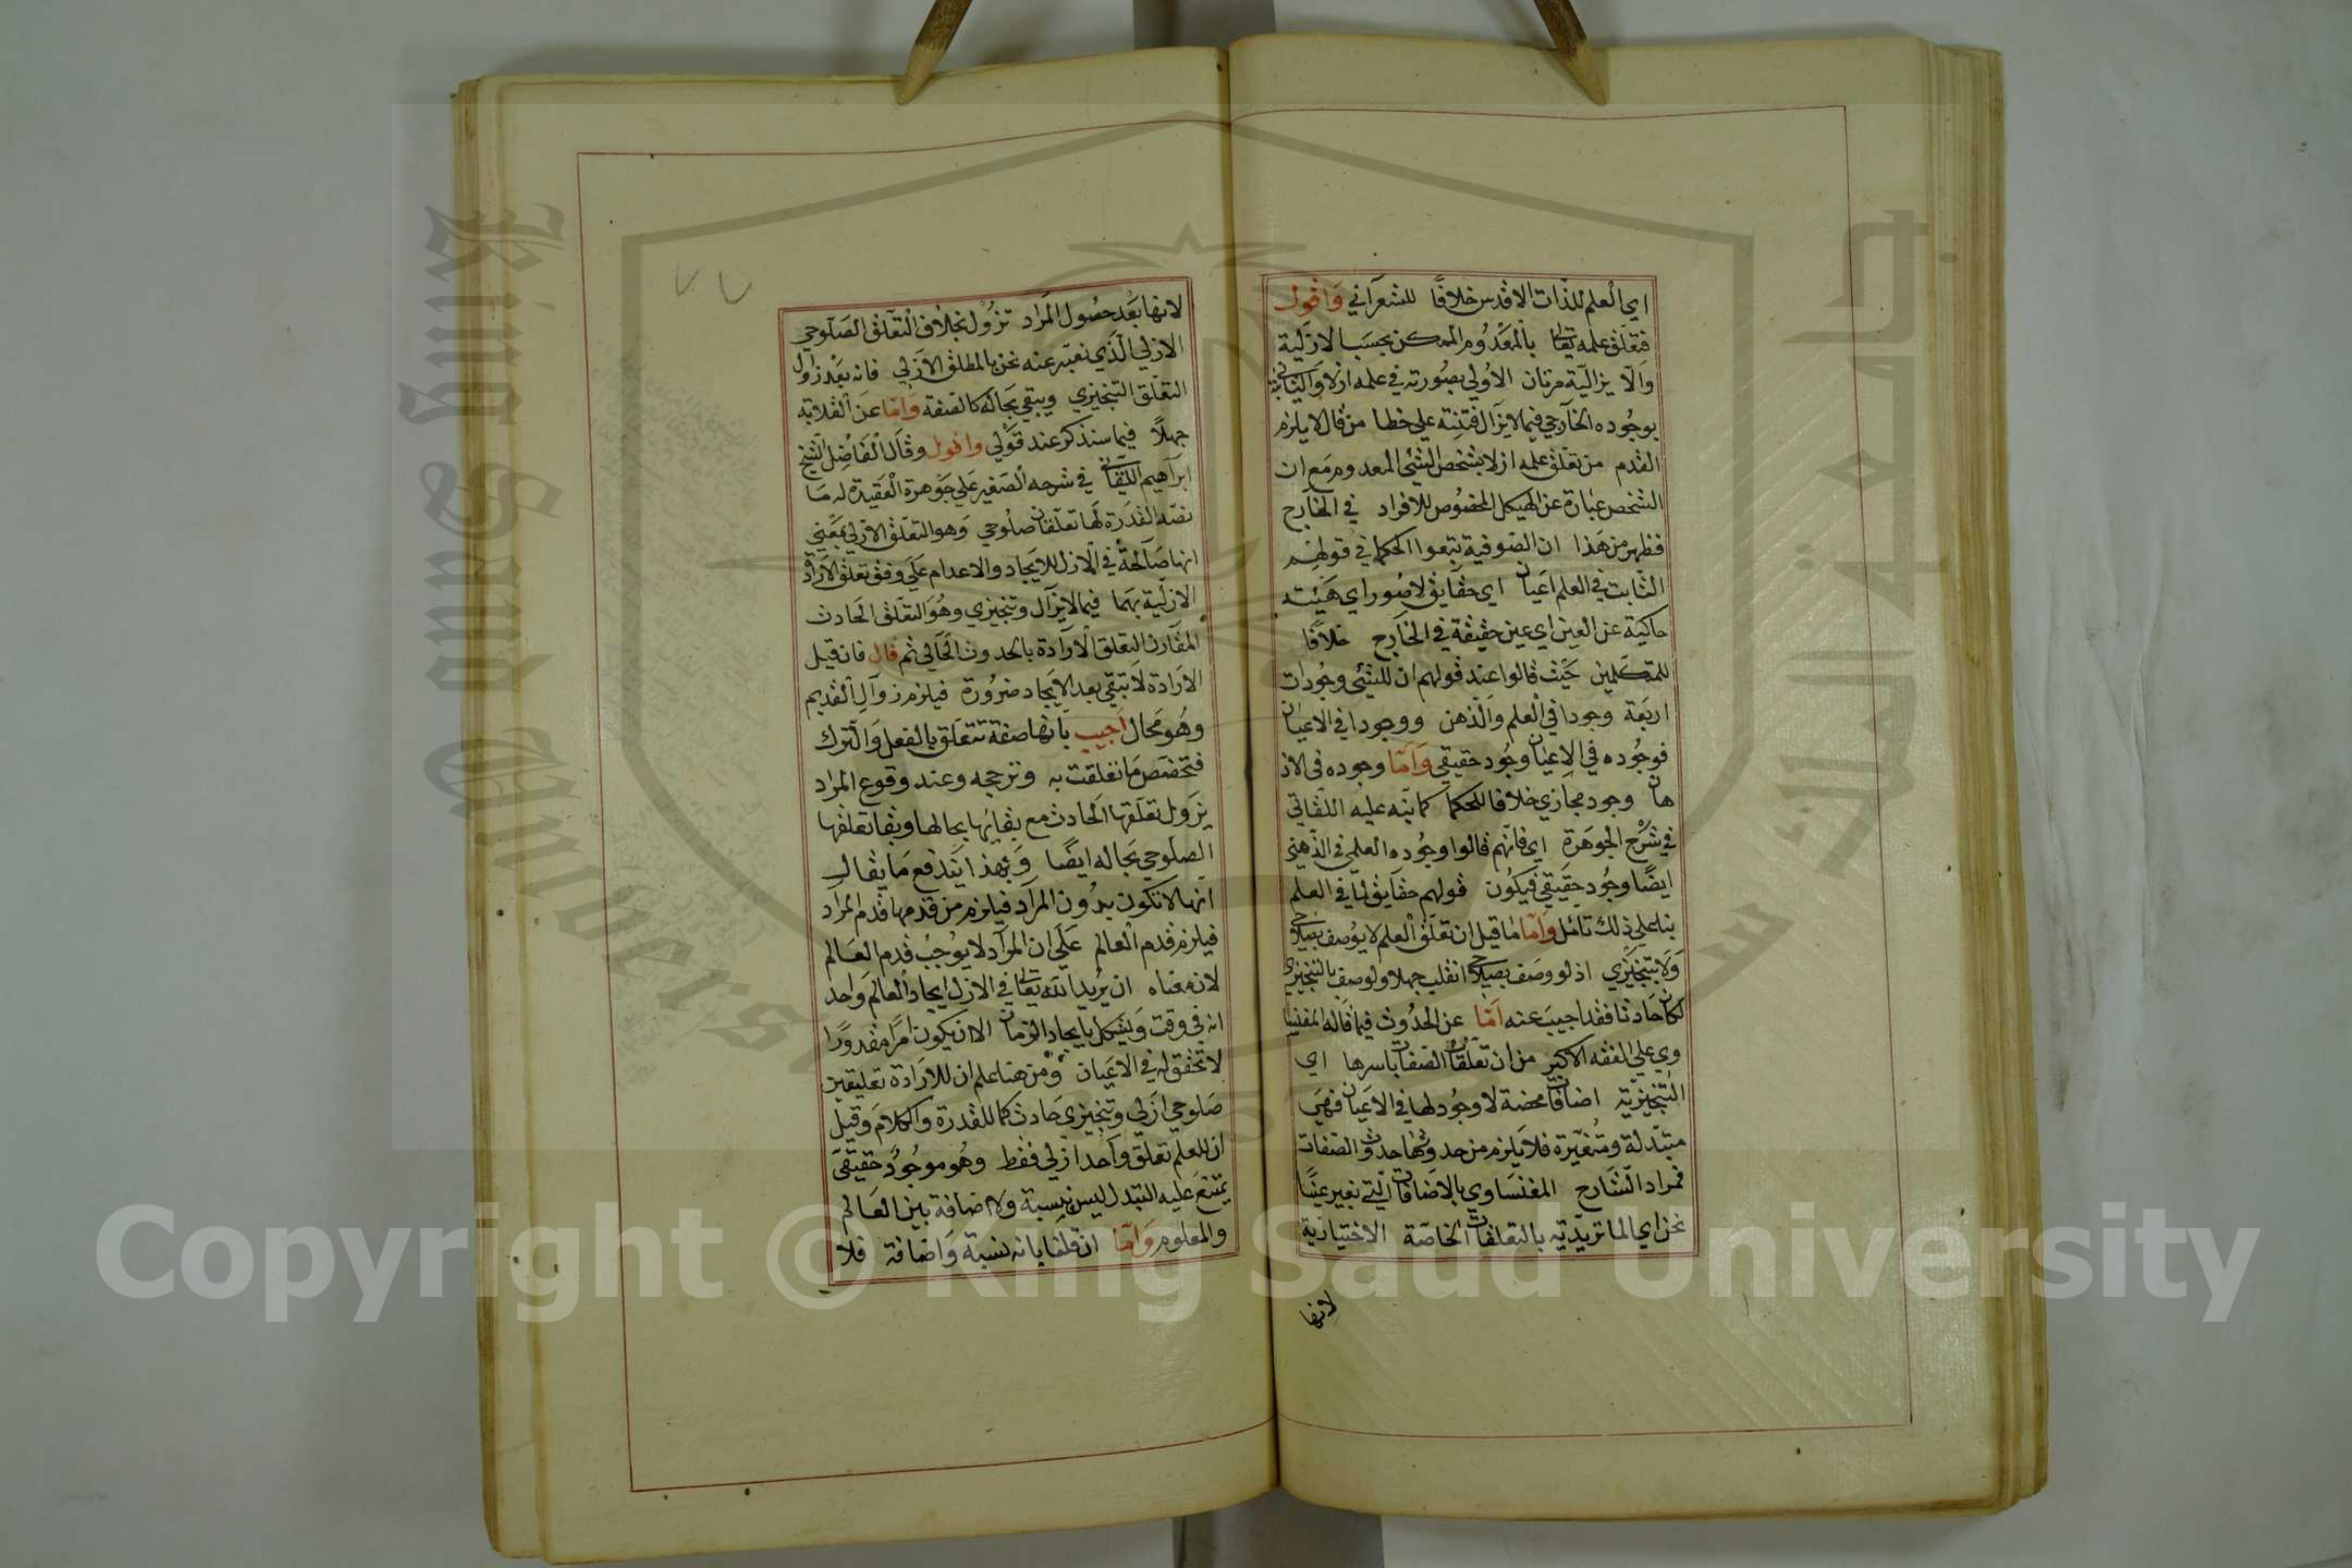 اي العلم للذات الاقدس خلافا للشعراني واقول
فتعلق علمه تعالى بالمعدوم الممكن بحسب الازلية
والا يزالية مرتان الاولي بصورته في علمه ازلا والثانية
بوجوده الخارجي فيما لا يزال فتنبه علي خطا من قال لا يلزم
القدم من تعلق علمه ازلا بشخص الشئ المعدوم مع ان
الشخص عبارة عن الهيكل المخصوص للافراد في الخارج
فظهر من هذا ان الصوفية تبعوا الحكما في قولهم
الثابت في العلم اعيان اي حقايق لا صور اي هيئت
حاكية عن العين اي عين حقيقة في الخارج خلافا
للمتكلمين حيث قالوا عند قولهم ان للشئ وجودات
اربعة وجودا في العلم والذهن ووجودا في الاعيان
فوجوده في الاعيان وجود حقيقي واما وجوده في الاذ
هان وجود مجازي خلافا للحكما كما نبه عليه اللقاني
في شرح الجوهرة اي فانهم قالوا وجوده العلمي في الذهني
ايضا وجود حقيقي فيكون قولهم حقايق لما في العلم
بنا علي ذلك تامل واما ما قيل ان تعلق العلم لا يوصف بصلاحي
ولا بتنجيزي اذ لو وصف بصلاحي انقلب جهلا ولو وصف بالتنجيزي
لكان حادثا فقد اجيب عنه اما عن الحدوث فيما قاله المغنيسا
وي علي الفقه الاكبر من ان تعلقات الصفات باسرها اي
التنجيزية اضافات محضة لا وجود لها في الاعيان فهي
متبدلة ومتغيرة فلا يلزم من حدوثها حدوث الصفات
فمراد الشارح المغنساوي بالاضافات التي نعبر عنها
نحن اي الماتريدية بالتعلقات الخاصة الاختيارية
لانها
لانها بعد حصول المراد تزول بخلاف التعلق الصلوحي
الازلي الذي نعبر عنه نحن بالمطلق الازلي فانه بعد زوال
التعلق التنجيزي ويبقي بحاله كالصفة واما عن انقلابه
جهلا فيما سنذكر عند قولي واقول وقال الفاضل الشيخ
ابراهيم اللقاني في شرحه الصغير علي جوهرة العقيدة له ما
نصه القدرة لها تعلقان صلوحي وهو التعلق الازلي بمعني
انها صالحة في الازل للايجاد والاعدام علي وفق تعلق الارادة
الازلية بهما فيما لا يزال وتنجيزي وهو التعلق الحادث
المقارن لتعلق الارادة بالحدوث الحالي ثم قال فان قيل
الارادة لا تبقي بعد الايجاد ضرورة فيلزم زوال القديم
وهو محال اجيب بانها صفة تتعلق بالفعل والترك
فتخصص ما تعلقت به وترجحه وعند وقوع المراد
يزول تعلقها الحادث مع بقائها بحالها وبقا تعلقها
الصلوحي بحاله ايضا وبهذا يندفع ما يقال
انها لا تكون بدون المراد فيلزم من قدمها قدم المراد
فيلزم قدم العالم علي ان المراد لا يوجب قدم العالم
لان معناه ان يريد الله تعالى في الازل ايجاد العالم واحد
انه في وقت ويشكل بايجاد الزمان الا ان يكون امرا مقدورا
لا تحقق له في الاعيان ومن هنا علم ان للارادة تعليقين
صلوحي ازلي وتنجيزي حادث كما للقدرة والكلام وقيل
ان للعلم تعلق واحد ازلي فقط وهو موجود حقيقي
يمتنع عليه التبدل ليس بنسبة ولا اضافة بين العالم
والمعلوم واما ان قلنا بانه نسبة واضافة فلا
٧٧
King Saud University
Copyright © King Saud University